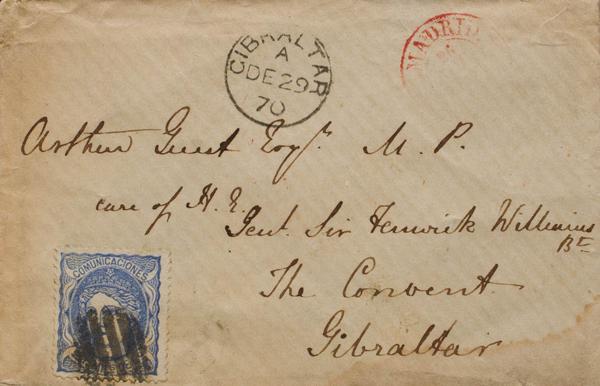 GIBRALTAR
A
DE 29
70
MADRID
Arthur Guest Esqr. M. P.
care of H. E.
Genl. Sir Fenwick Williams
Bt
The Convent
Gibraltar
COMUNICACIONES